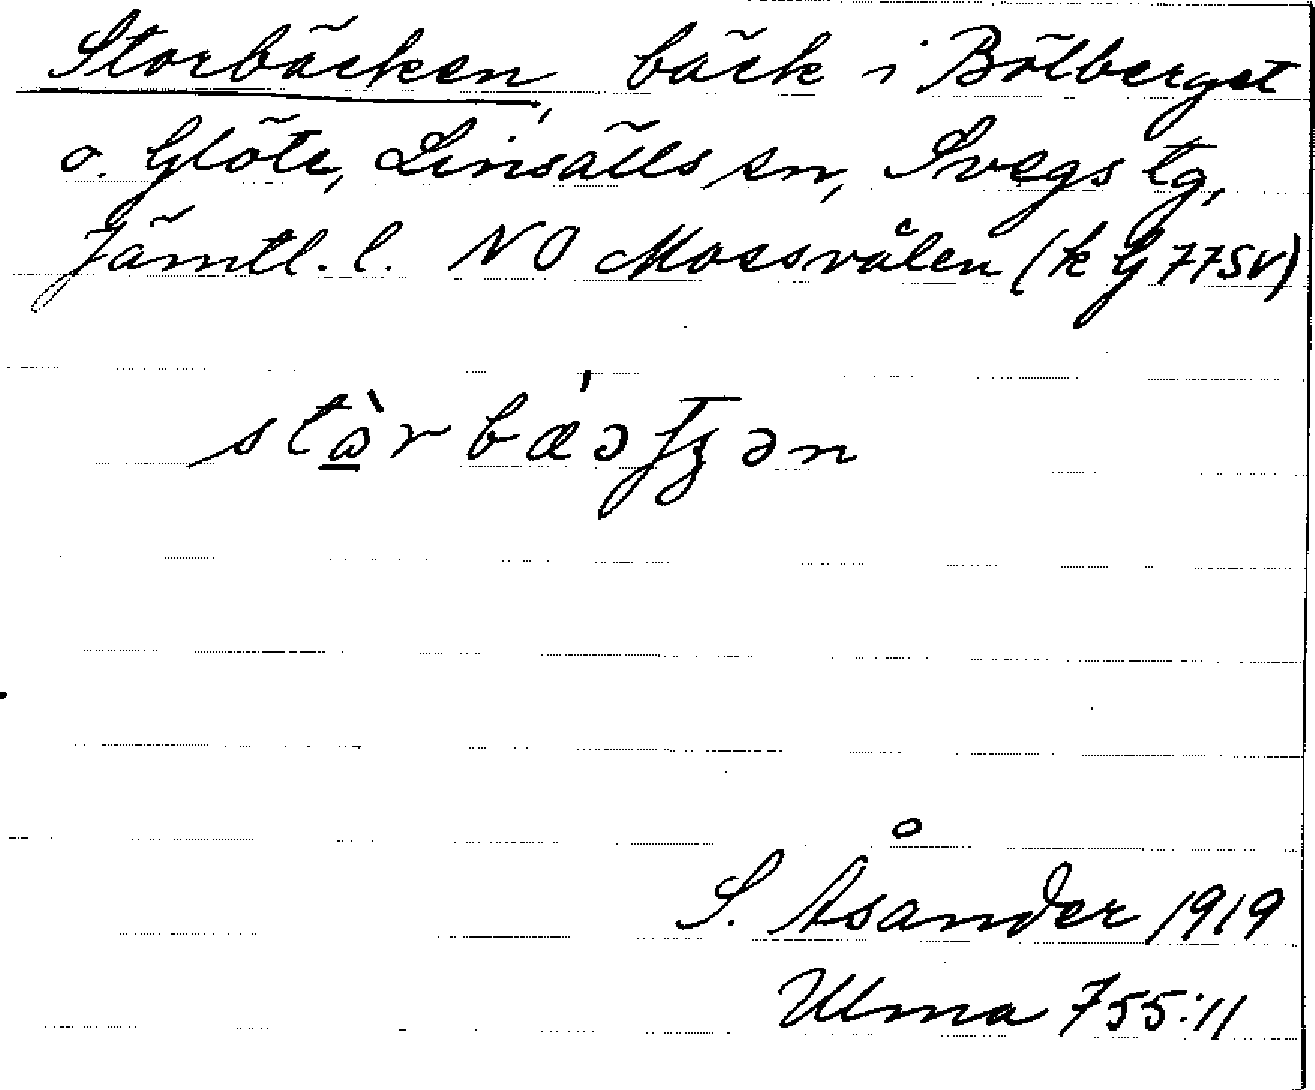 Storbäcken, bäck i Bölberget
o. Glöte, Linsälls sn, Svegs tg,
Jämtl. l. NO Mossvålen (k G 77SV)
S. Åsander 1919
Ulma 755:11